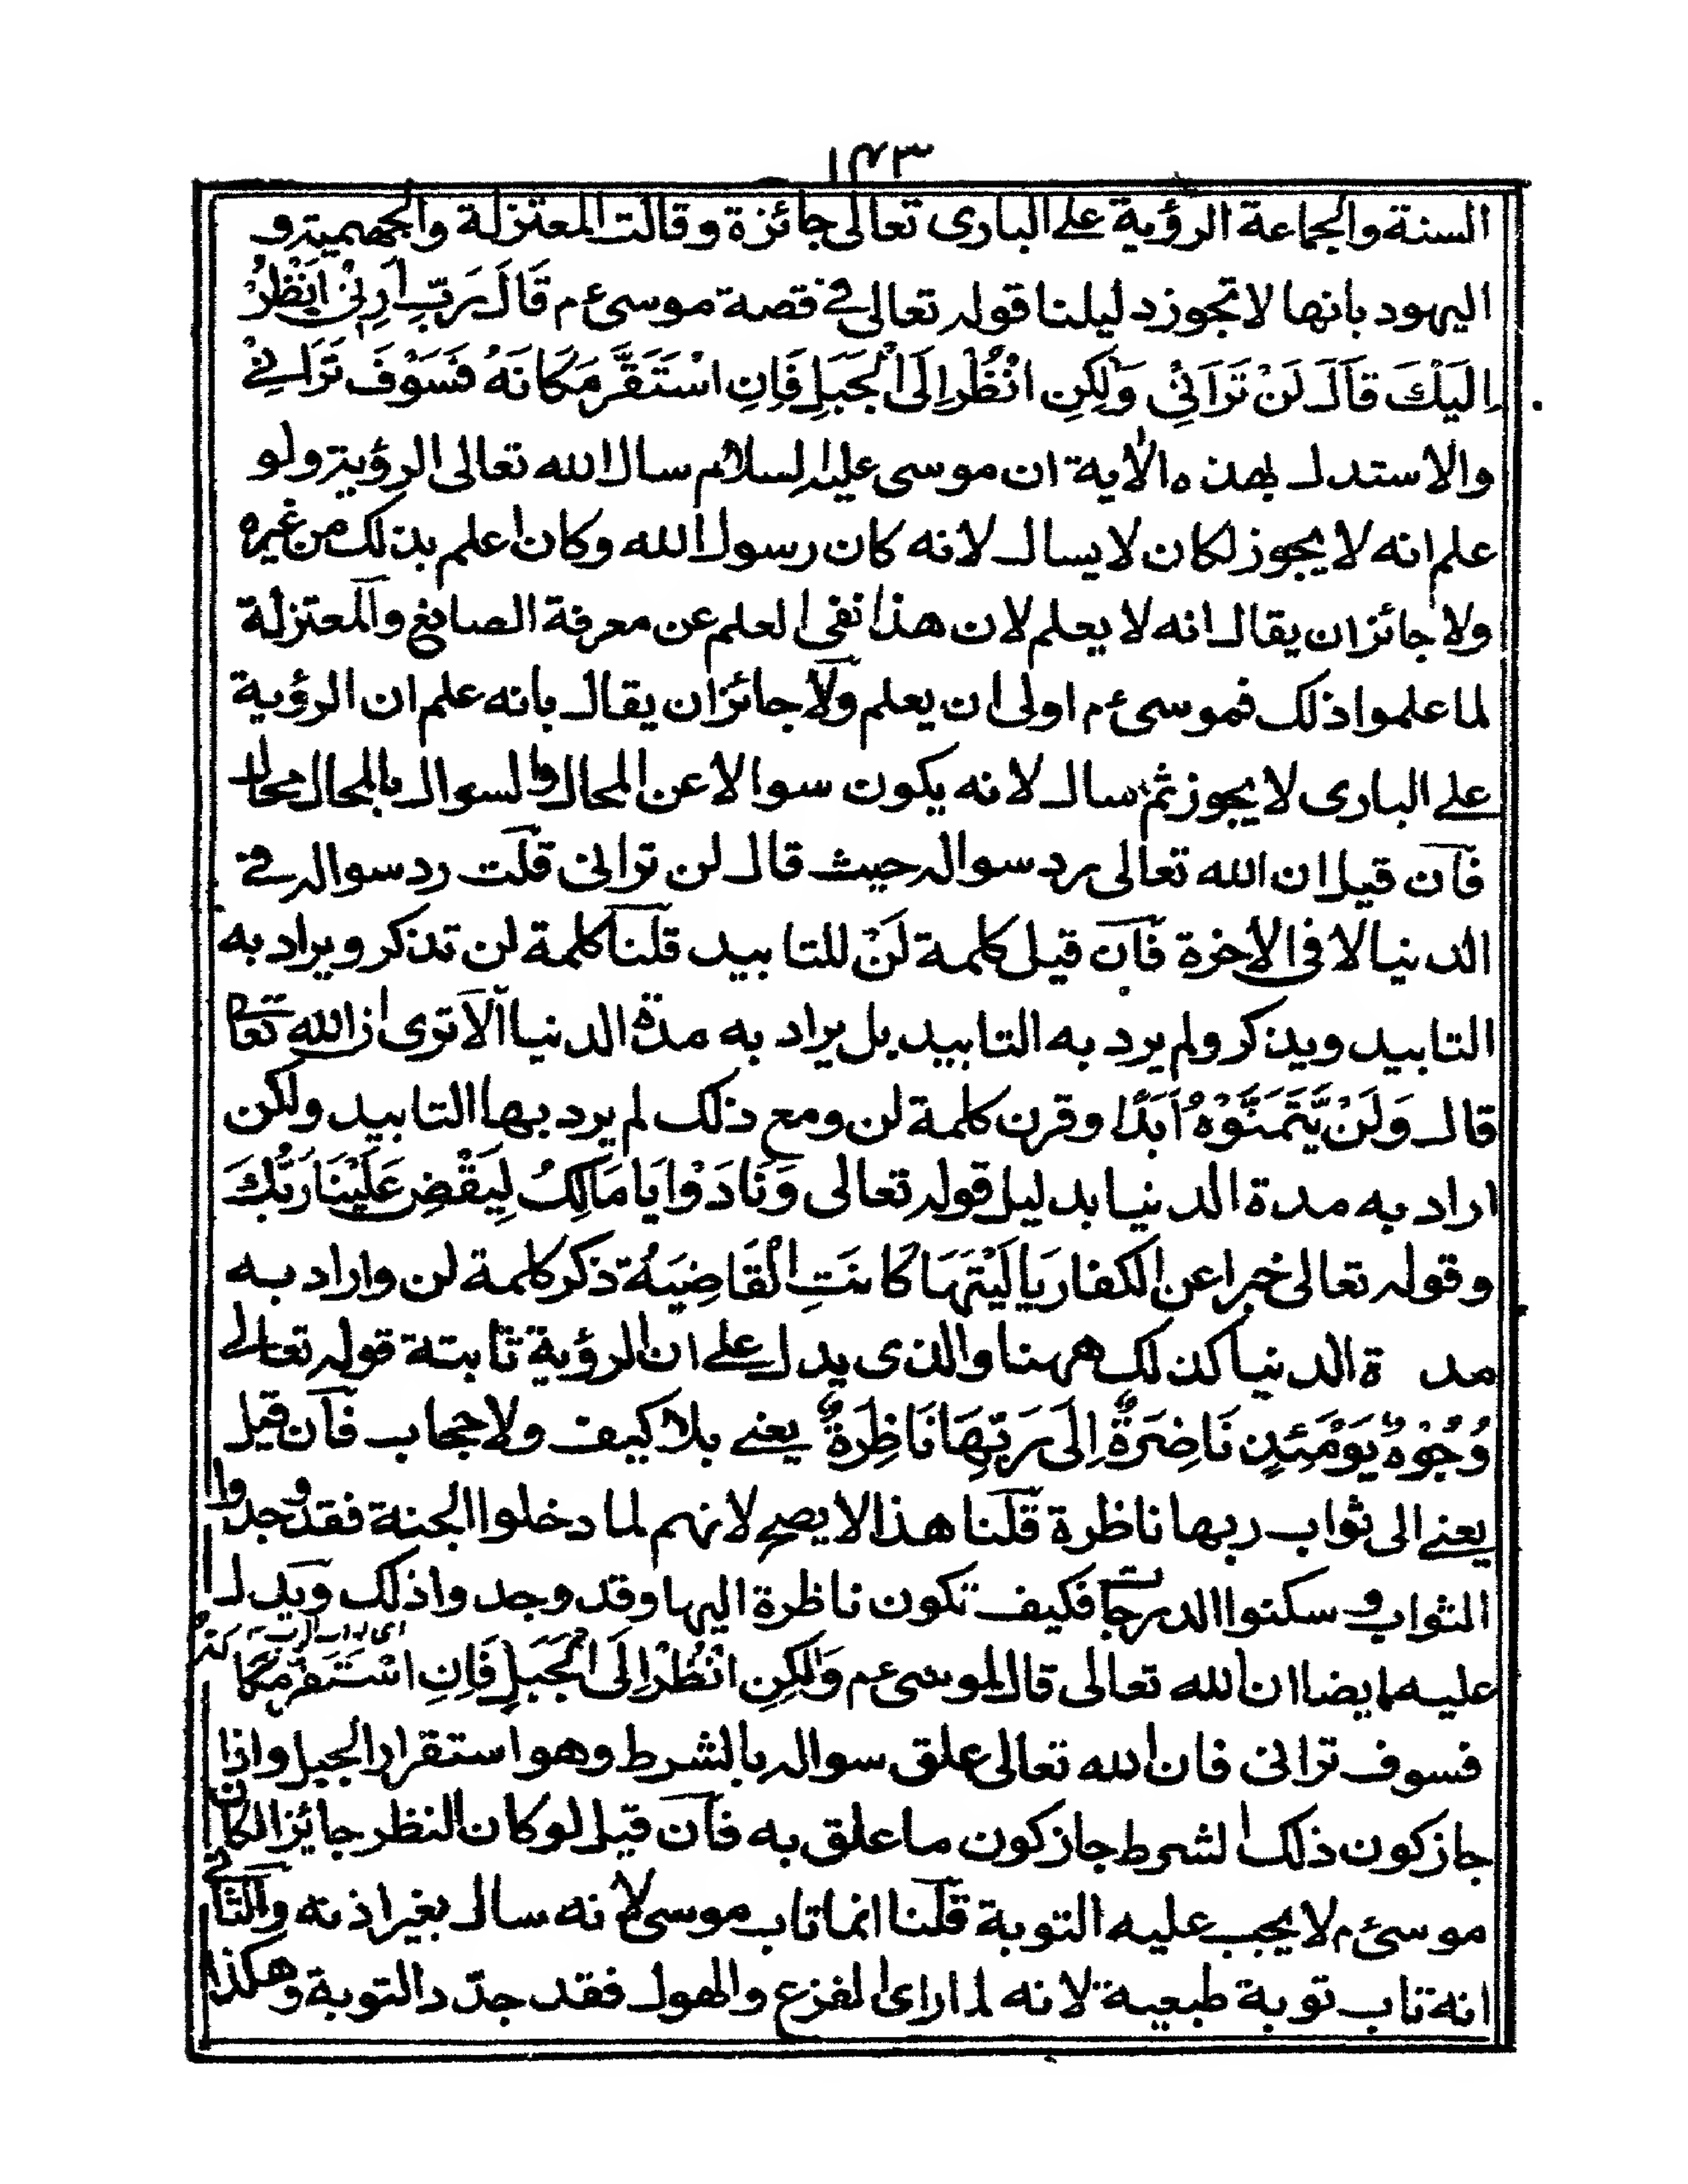 ١٤٣
السنة والجماعة الرؤية على البارى تعالى جائزة وقالت المعتزلة والجهمية و
اليهود بانها لا تجوز دليلنا قوله تعالى في قصة موسىء م قَالَ رَبِّ اَرِنِيْ اَنْظُرْ
اِلَيْكَ قَالَ لَنْ تَرَانِيْ وَلٰكِنِ انْظُرْ اِلَى الْجَبَلِ فَاِنِ اسْتَقَرَّ مَكَانَهُ فَسَوْفَ تَرَانِيْ
والاستدلـ بهذه الاية ان موسى عليه السلام سال الله تعالى الرؤية ولو
علم انه لا يجوز لكان لا يسال لانه كان رسول الله وكان اعلم بذلك من غيره
ولا جائز ان يقال انه لا يعلم لان هذا نفى العلم عن معرفة الصانع والمعتزلة
لما علموا ذلك فموسىء م اولى ان يعلم ولا جائز ان يقال بانه علم ان الرؤية
على البارى لا يجوز ثم سال لانه يكون سوالا عن المحال والسوال بالمحال محال
فان قيل ان الله تعالى رد سواله حيث قال لن ترانى قلت رد سواله في
الدنيا لا فى الاخرة فان قيل كلمة لَنْ للتابيد قلنا كلمة لن تذكر ويراد به
التابيد ويذكر ولم يرد به التابيد بل يراد به مدة الدنيا الا ترى ان الله تعا
قال وَلَنْ يَّتَمَنَّوْهُ اَبَدًا وقرن كلمة لن ومع ذلك لم يرد بها التابيد ولكن
اراد به مدة الدنيا بدليل قوله تعالى وَنَادَوْا يَا مَالِكُ لِيَقْضِ عَلَيْنَا رَبُّكَ
وقوله تعالى خبرا عن الكفار يَا لَيْتَهَا كَانَتِ الْقَاضِيَةُ ذكر كلمة لن واراد به
مدة الدنيا كذلك ههنا والذى يدل على ان الرؤية ثابتة قوله تعالى
وُجُوْهٌ يَوْمَئِذٍ نَاضِرَةٌ اِلَى رَبِّهَا نَاظِرَةٌ يعنے بلا كيف ولا حجاب فان قيل
يعنے الى ثواب ربها ناظرة قلنا هذا لا يصح لانهم لما دخلوا الجنة فقد وجدوا
الثواب و سكنوا الدرجات فكيف تكون ناظرة اليها وقد وجدوا ذلك ويدلـ
عليه ايضا ان الله تعالى قال لموسىء م وَلٰكِنِ انْظُرْ اِلَى الْجَبَلِ فَاِنِ اسْتَقَرَّ مَكَانَهُ
فسوف ترانى فان الله تعالى علق سواله بالشرط وهو استقرار الجبل واذا
جاز كون ذلك الشرط جاز كون ما علق به فان قيل لو كان النظر جائزا لكان
موسىء م لا يجب عليه التوبة قلنا انما تاب موسى لانه سال بغير اذنه والثانى
انه تاب توبة طبعية لانه لما راى الفزع والهول فقد جدّد التوبة وهكذا